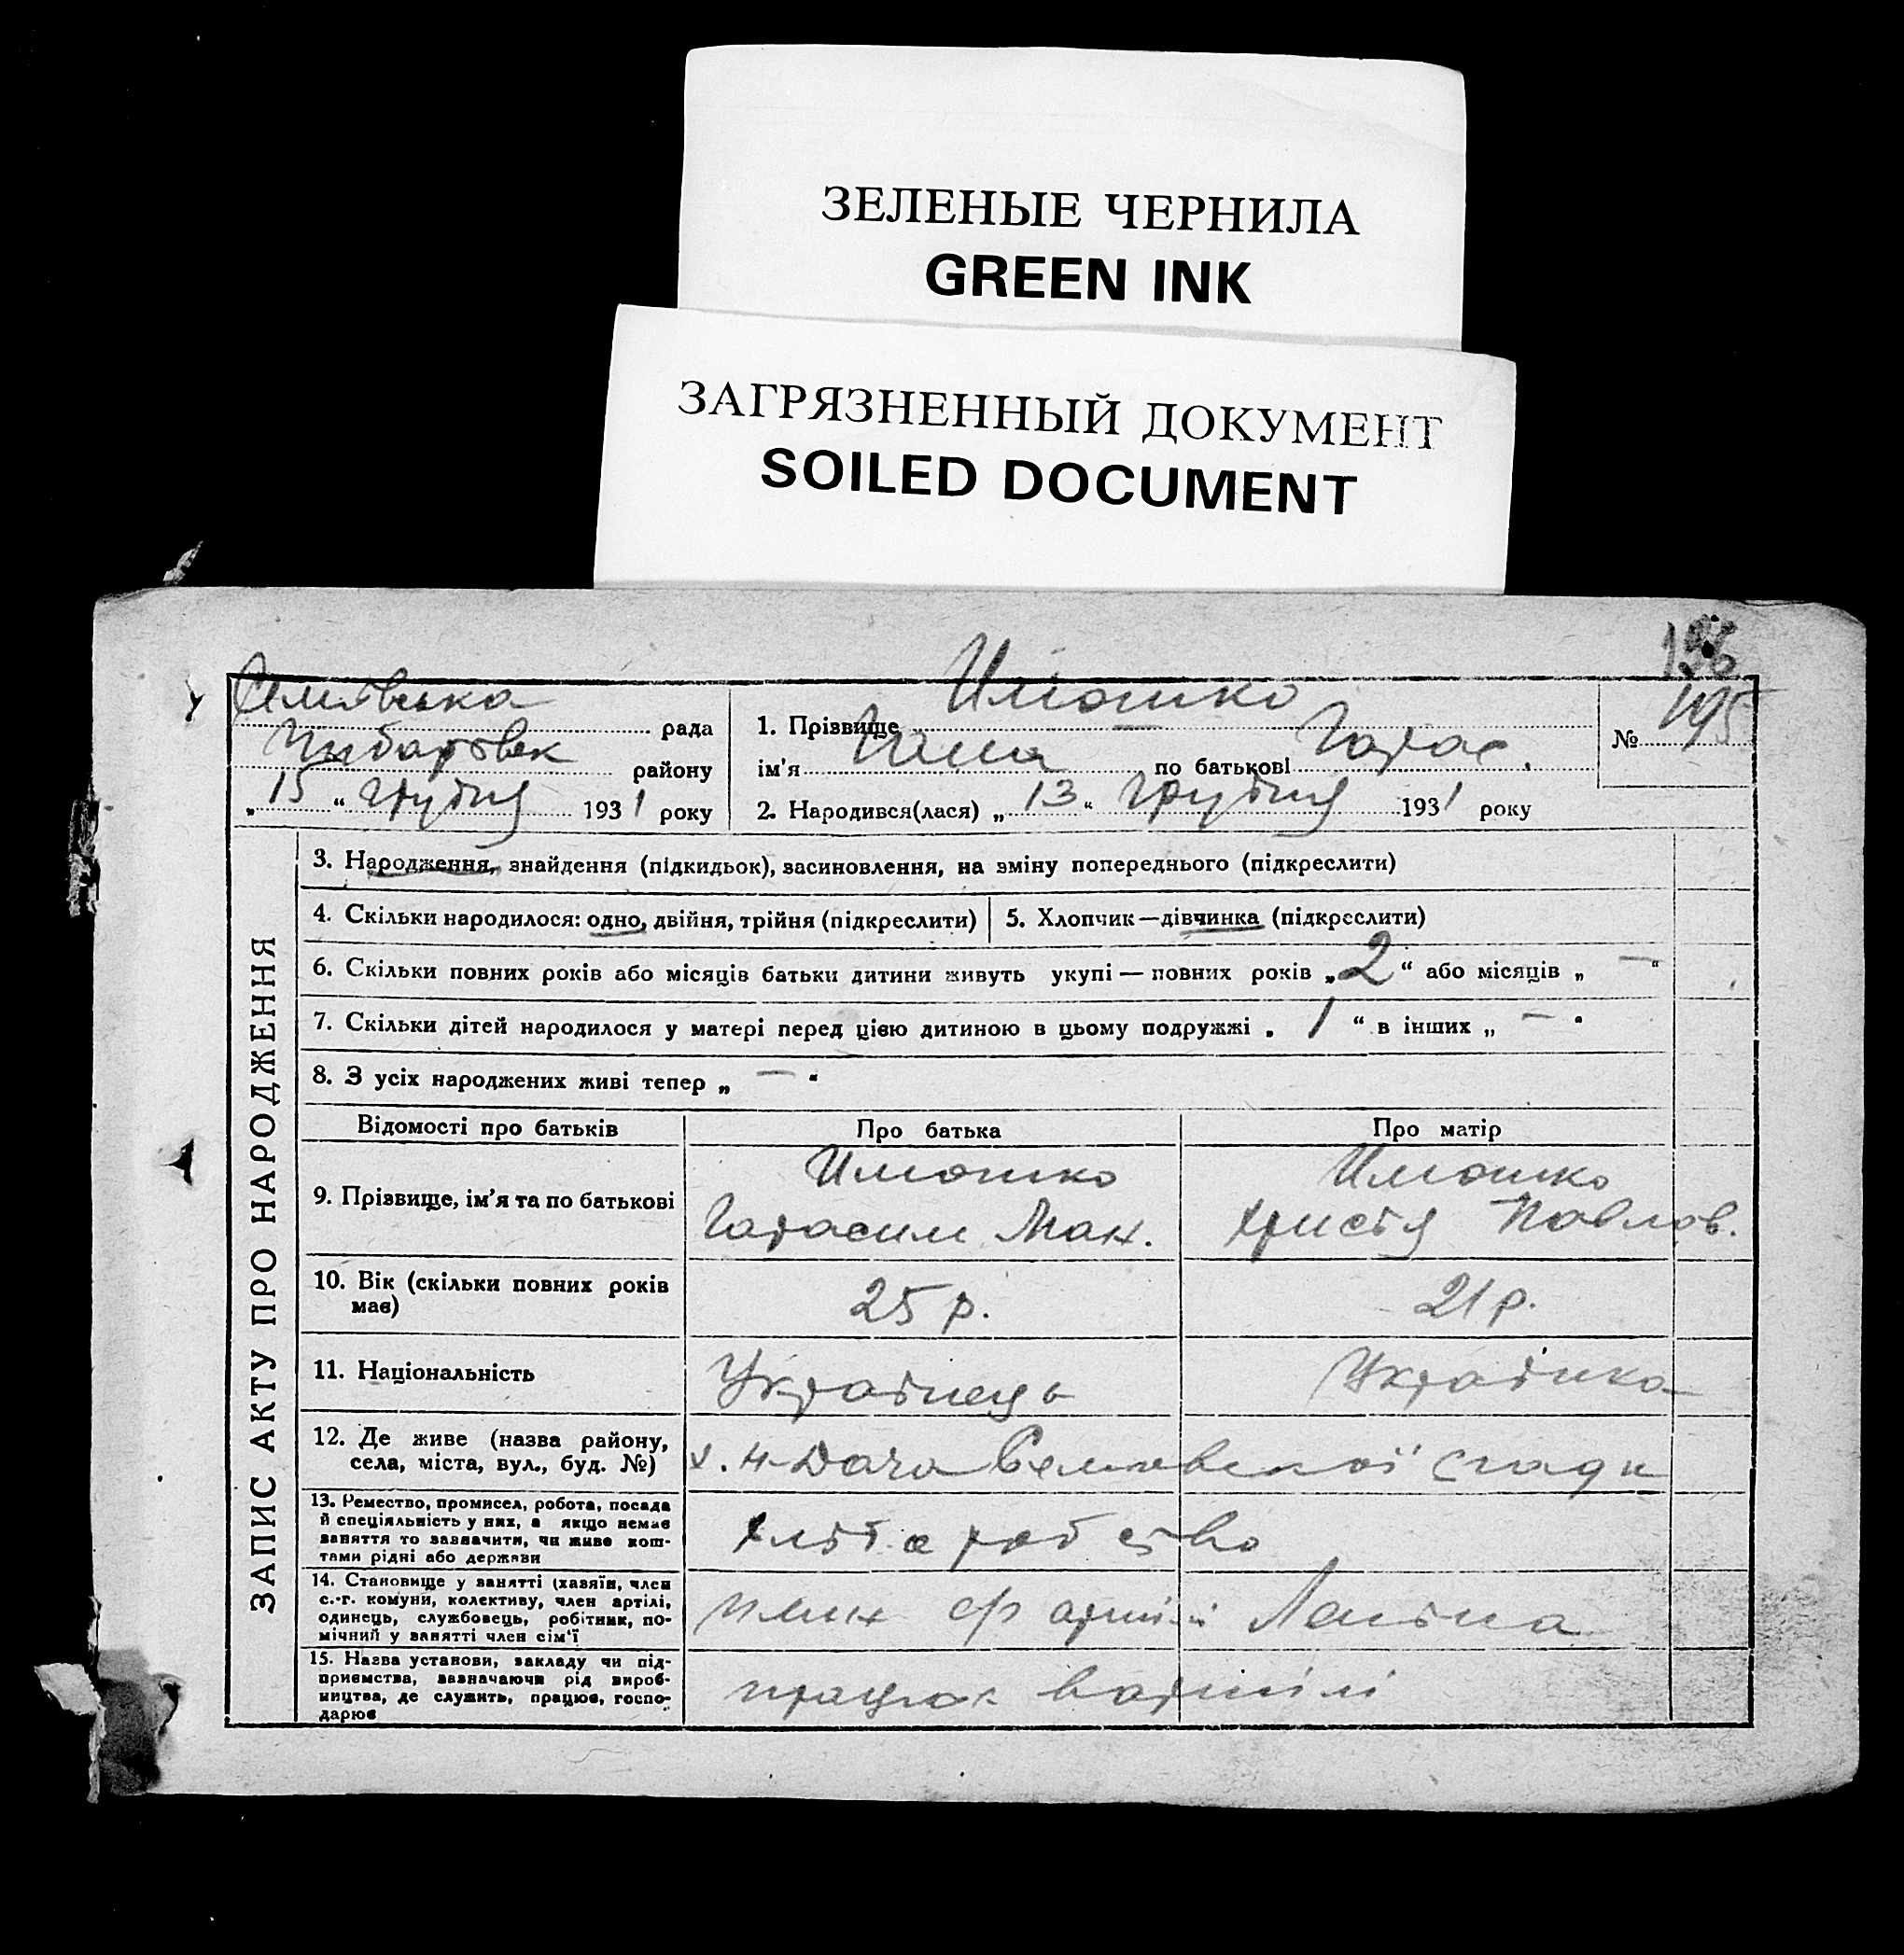 ЗЕЛЕНЫЕ ЧЕРНИЛА
GREEN INK
ЗАГРЯЗНЕННЫЙ ДОКУМЕНТ
SOILED DOCUMENT
рада
району
„15“ Грудня 1931 року
1. Прізвище Илюшко
ім'я по батькові Гарас.
2. Народився(лася) „13“ Грудня 1931 року
№ 195
ЗАПИС АКТУ ПРО НАРОДЖЕННЯ
3. Народження, знайдення (підкидьок), засиновлення, на зміну попереднього (підкреслити)
4. Скільки народилося: одно, двійня, трійня (підкреслити)
5. Хлопчик—дівчинка (підкреслити)
6. Скільки повних років або місяців батьки дитини живуть укупі — повних років „2“ або місяців „—“
7. Скільки дітей народилося у матері перед цією дитиною в цьому подружжі „1“ в інших „—“
8. З усіх народжених живі тепер „—“
Відомості про батьків
Про батька
Про матір
9. Прізвище, ім'я та по батькові
Илюшко
Гарасим Мак.
Илюшко
Христя Павлов.
10. Вік (скільки повних років
має)
25 р.
21 р.
11. Національність
Українець
Українка
12. Де живе (назва району,
села, міста, вул., буд. №)
х. Н-Дача
13. Ремество, промисел, робота, посада
й спеціяльність у них, а якщо немає
заняття то зазначити, чи живе кош-
тами рідні або держави
хліборобство
14. Становище у занятті (хазяїн, член
с.-г. комуни, колективу, член артілі,
одинець, службовець, робітник, по-
мічний у занятті член сім'ї
член с/г артілі Леніна
15. Назва установи, закладу чи під-
приємства, зазначаючи рід вироб-
ництва, де служить, працює, госпо-
дарює
працює в артілі